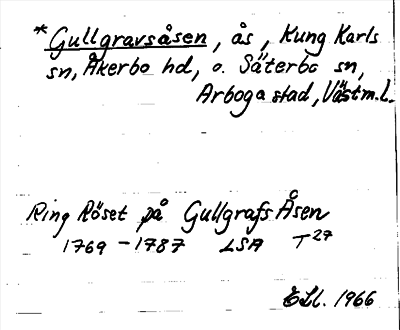 *Gullgravsåsen, ås, Kung Karls
sn, Åkerbo hd, o. Säterbo sn,
Arboga stad, Västm.l.
Ring Röset på Gullgrafs Åsen
1769-1787 LSA T27
1966